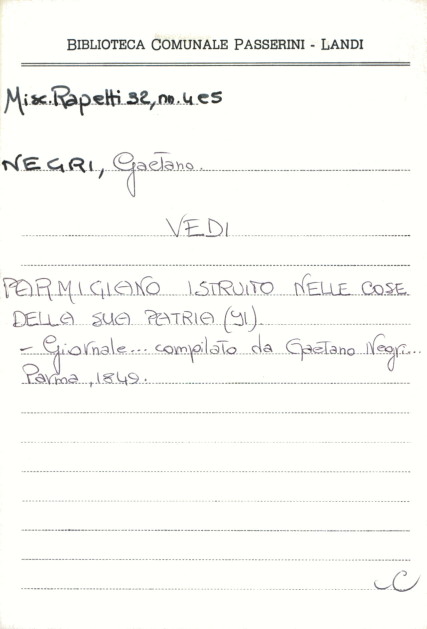 BIBLIOTECA COMUNALE PASSERINI - LANDI
Misc. Rapetti 32, no. 4 e 5
NEGRI, Gaetano.
VEDI
PARMIGIANO ISTRUITO NELLE COSE
DELLA SUA PATRIA (Il)
- Giornale... compilato da Gaetano Negri...
Parma, 1849.
C